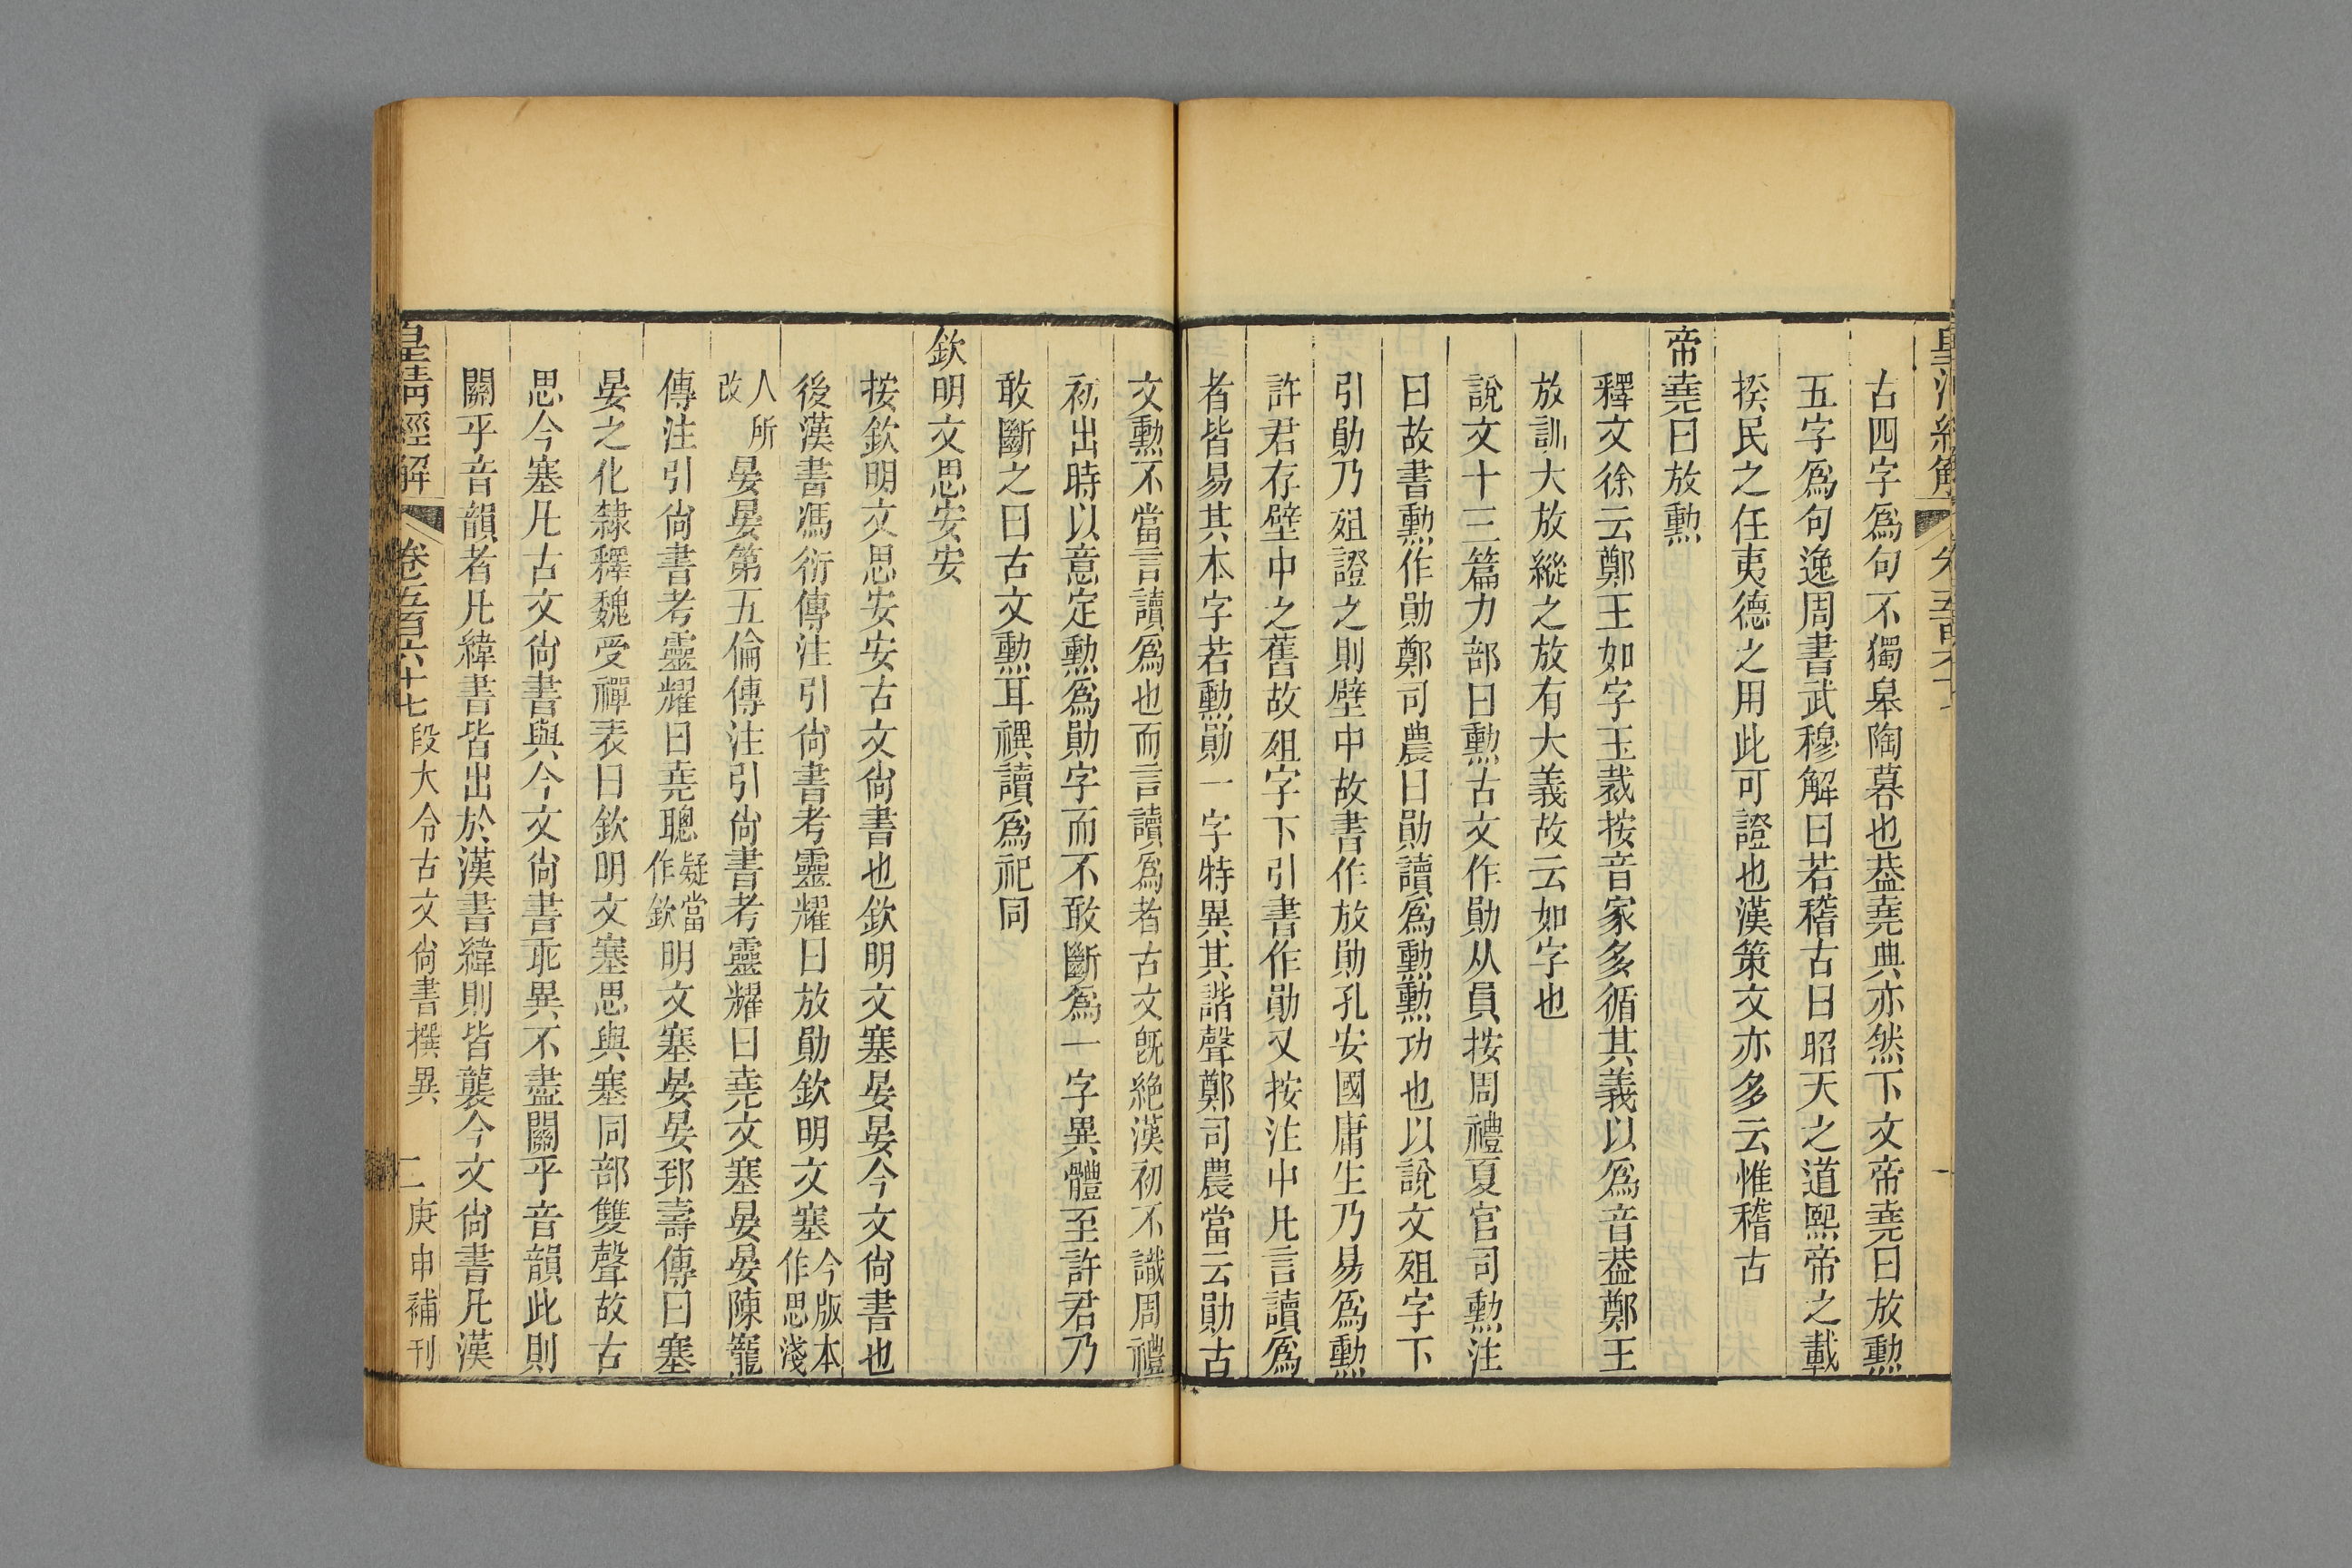 古四字爲句不獨皋陶暮也葢堯典亦然下文帝堯曰放勳
五字爲句逸周書武穆解曰若稽古曰昭天之道熙帝之載
揆民之任夷德之用此可證也漢策文亦多云惟稽古
帝堯曰放勳
釋文徐云鄭王如字玉裁按音家多循其義以爲音葢鄭王
放訓大放縱之放有大義故云如字也
說文十三篇力部曰勳古文作勛从員按周禮夏官司勳注
曰故書勳作勛鄭司農曰勛讀爲勳勳功也以說文殂字下
引勛乃殂證之則壁中故書作放勛孔安國庸生乃易爲勳
許君存壁中之舊故殂字下引書作勛又按注中凡言讀爲
者皆易其本字若勳勛一字特異其諧聲鄭司農當云勛古
文勳不當言讀爲也而言讀爲者古文旣絶漢初不識周禮
初出時以意定勳爲勛字而不敢斷爲一字異體至許君乃
敢斷之曰古文勳耳禩讀爲祀同
欽明文思安安
按欽明文思安安古文尙書也欽明文塞晏晏今文尙書也
後漢書馮衍傳注引尙書考靈耀曰放勛欽明文塞今版本作思淺
人所改晏晏第五倫傳注引尙書考靈耀曰堯文塞晏晏陳寵
傳注引尙書考靈耀曰堯聰疑當作欽明文塞晏晏郅壽傳曰塞
晏之化隸釋魏受禪表曰欽明文塞思與塞同部雙聲故古
思今塞凡古文尙書與今文尙書乖異不盡關乎音韻此則
關乎音韻者凡緯書皆出於漢書緯則皆襲今文尙書凡漢
皇清經解 卷五百六十七 段大令古文尙書撰異 二 庚申補刊